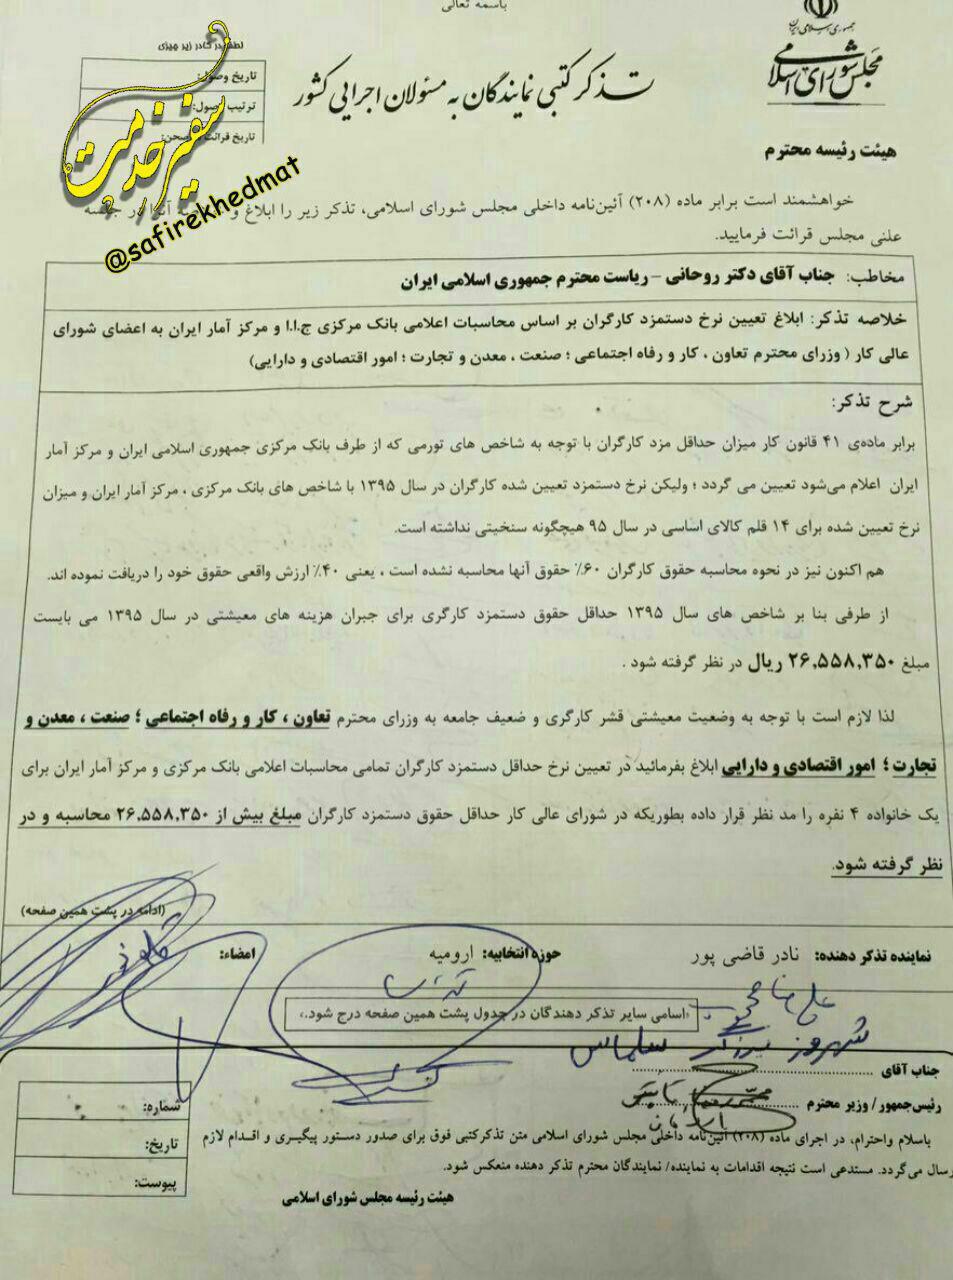 باسمه تعالی
جمهوری اسلامی ایران
مجلس شورای اسلامی
تذکر کتبی نمایندگان به مسئولان اجرایی کشور
لطفا در کادر زیر چیزی
تاریخ وصول:
ترتیب وصول:
تاریخ قرائت صحن:
سفیر خدمت
@safirekhedmat
هیئت رئیسه محترم
خواهشمند است برابر ماده (۲۰۸) آئین‌نامه داخلی مجلس شورای اسلامی، تذکر زیر را ابلاغ و در جلسه
علنی مجلس قرائت فرمایید.
مخاطب: جناب آقای دکتر روحانی – ریاست محترم جمهوری اسلامی ایران
خلاصه تذکر: ابلاغ تعیین نرخ دستمزد کارگران بر اساس محاسبات اعلامی بانک مرکزی ج.ا.ا و مرکز آمار ایران به اعضای شورای
عالی کار ( وزرای محترم تعاون ، کار و رفاه اجتماعی ؛ صنعت ، معدن و تجارت ؛ امور اقتصادی و دارایی)
شرح تذکر:
برابر ماده‌ی ۴۱ قانون کار میزان حداقل مزد کارگران با توجه به شاخص های تورمی که از طرف بانک مرکزی جمهوری اسلامی ایران و مرکز آمار
ایران اعلام می‌شود تعیین می گردد ؛ ولیکن نرخ دستمزد تعیین شده کارگران در سال ۱۳۹۵ با شاخص های بانک مرکزی ، مرکز آمار ایران و میزان
نرخ تعیین شده برای ۱۴ قلم کالای اساسی در سال ۹۵ هیچگونه سنخیتی نداشته است.
هم اکنون نیز در نحوه محاسبه حقوق کارگران ۶۰٪ حقوق آنها محاسبه نشده است ، یعنی ۴۰٪ ارزش واقعی حقوق خود را دریافت نموده اند.
از طرفی بنا بر شاخص های سال ۱۳۹۵ حداقل حقوق دستمزد کارگری برای جبران هزینه های معیشتی در سال ۱۳۹۵ می بایست
مبلغ ۲۶,۵۵۸,۳۵۰ ریال در نظر گرفته شود .
لذا لازم است با توجه به وضعیت معیشتی قشر کارگری و ضعیف جامعه به وزرای محترم تعاون ، کار و رفاه اجتماعی ؛ صنعت ، معدن و
تجارت ؛ امور اقتصادی و دارایی ابلاغ بفرمائید در تعیین نرخ حداقل دستمزد کارگران تمامی محاسبات اعلامی بانک مرکزی و مرکز آمار ایران برای
یک خانواده ۴ نفره را مد نظر قرار داده بطوریکه در شورای عالی کار حداقل حقوق دستمزد کارگران مبلغ بیش از ۲۶,۵۵۸,۳۵۰ محاسبه و در
نظر گرفته شود.
(ادامه در پشت همین صفحه)
نماینده تذکر دهنده: نادر قاضی پور حوزه انتخابیه: ارومیه امضاء:
«اسامی سایر تذکر دهندگان در جدول پشت همین صفحه درج شود.»
شهروز سلماس
جناب آقای
رئیس‌جمهور / وزیر محترم
باسلام واحترام، در اجرای ماده (۲۰۸) آئین‌نامه داخلی مجلس شورای اسلامی متن تذکرکتبی فوق برای صدور دستور پیگیری و اقدام لازم
رسال می‌گردد. مستدعی است نتیجه اقدامات به نماینده/ نمایندگان محترم تذکر دهنده منعکس شود.
هیئت رئیسه مجلس شورای اسلامی
شماره:
تاریخ:
پیوست: